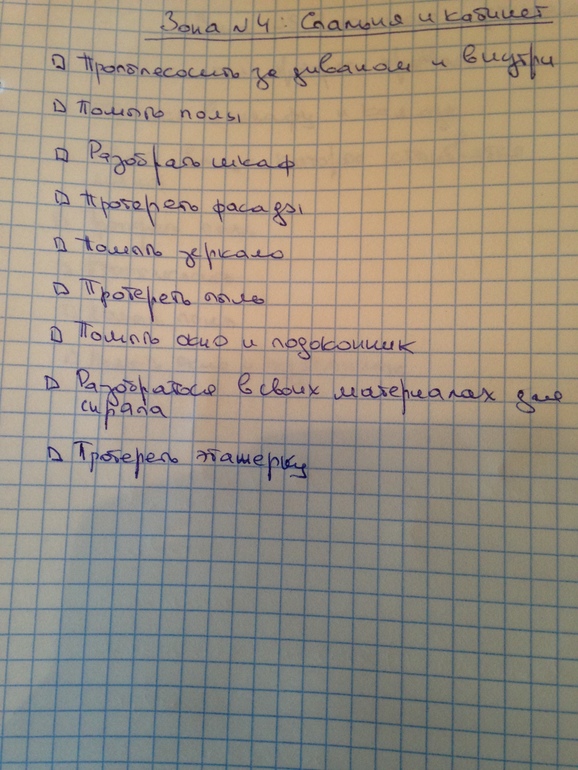 Зона №4: Спальня и кабинет
□ Пропылесосить за диваном и внутри
□ Помыть полы
□ Разобрать шкаф
□ Протереть фасады
□ Помыть зеркало
□ Протереть пыль
□ Помыть окно и подоконник
□ Разобраться в своих материалах для
скрапа
□ Протереть этажерку